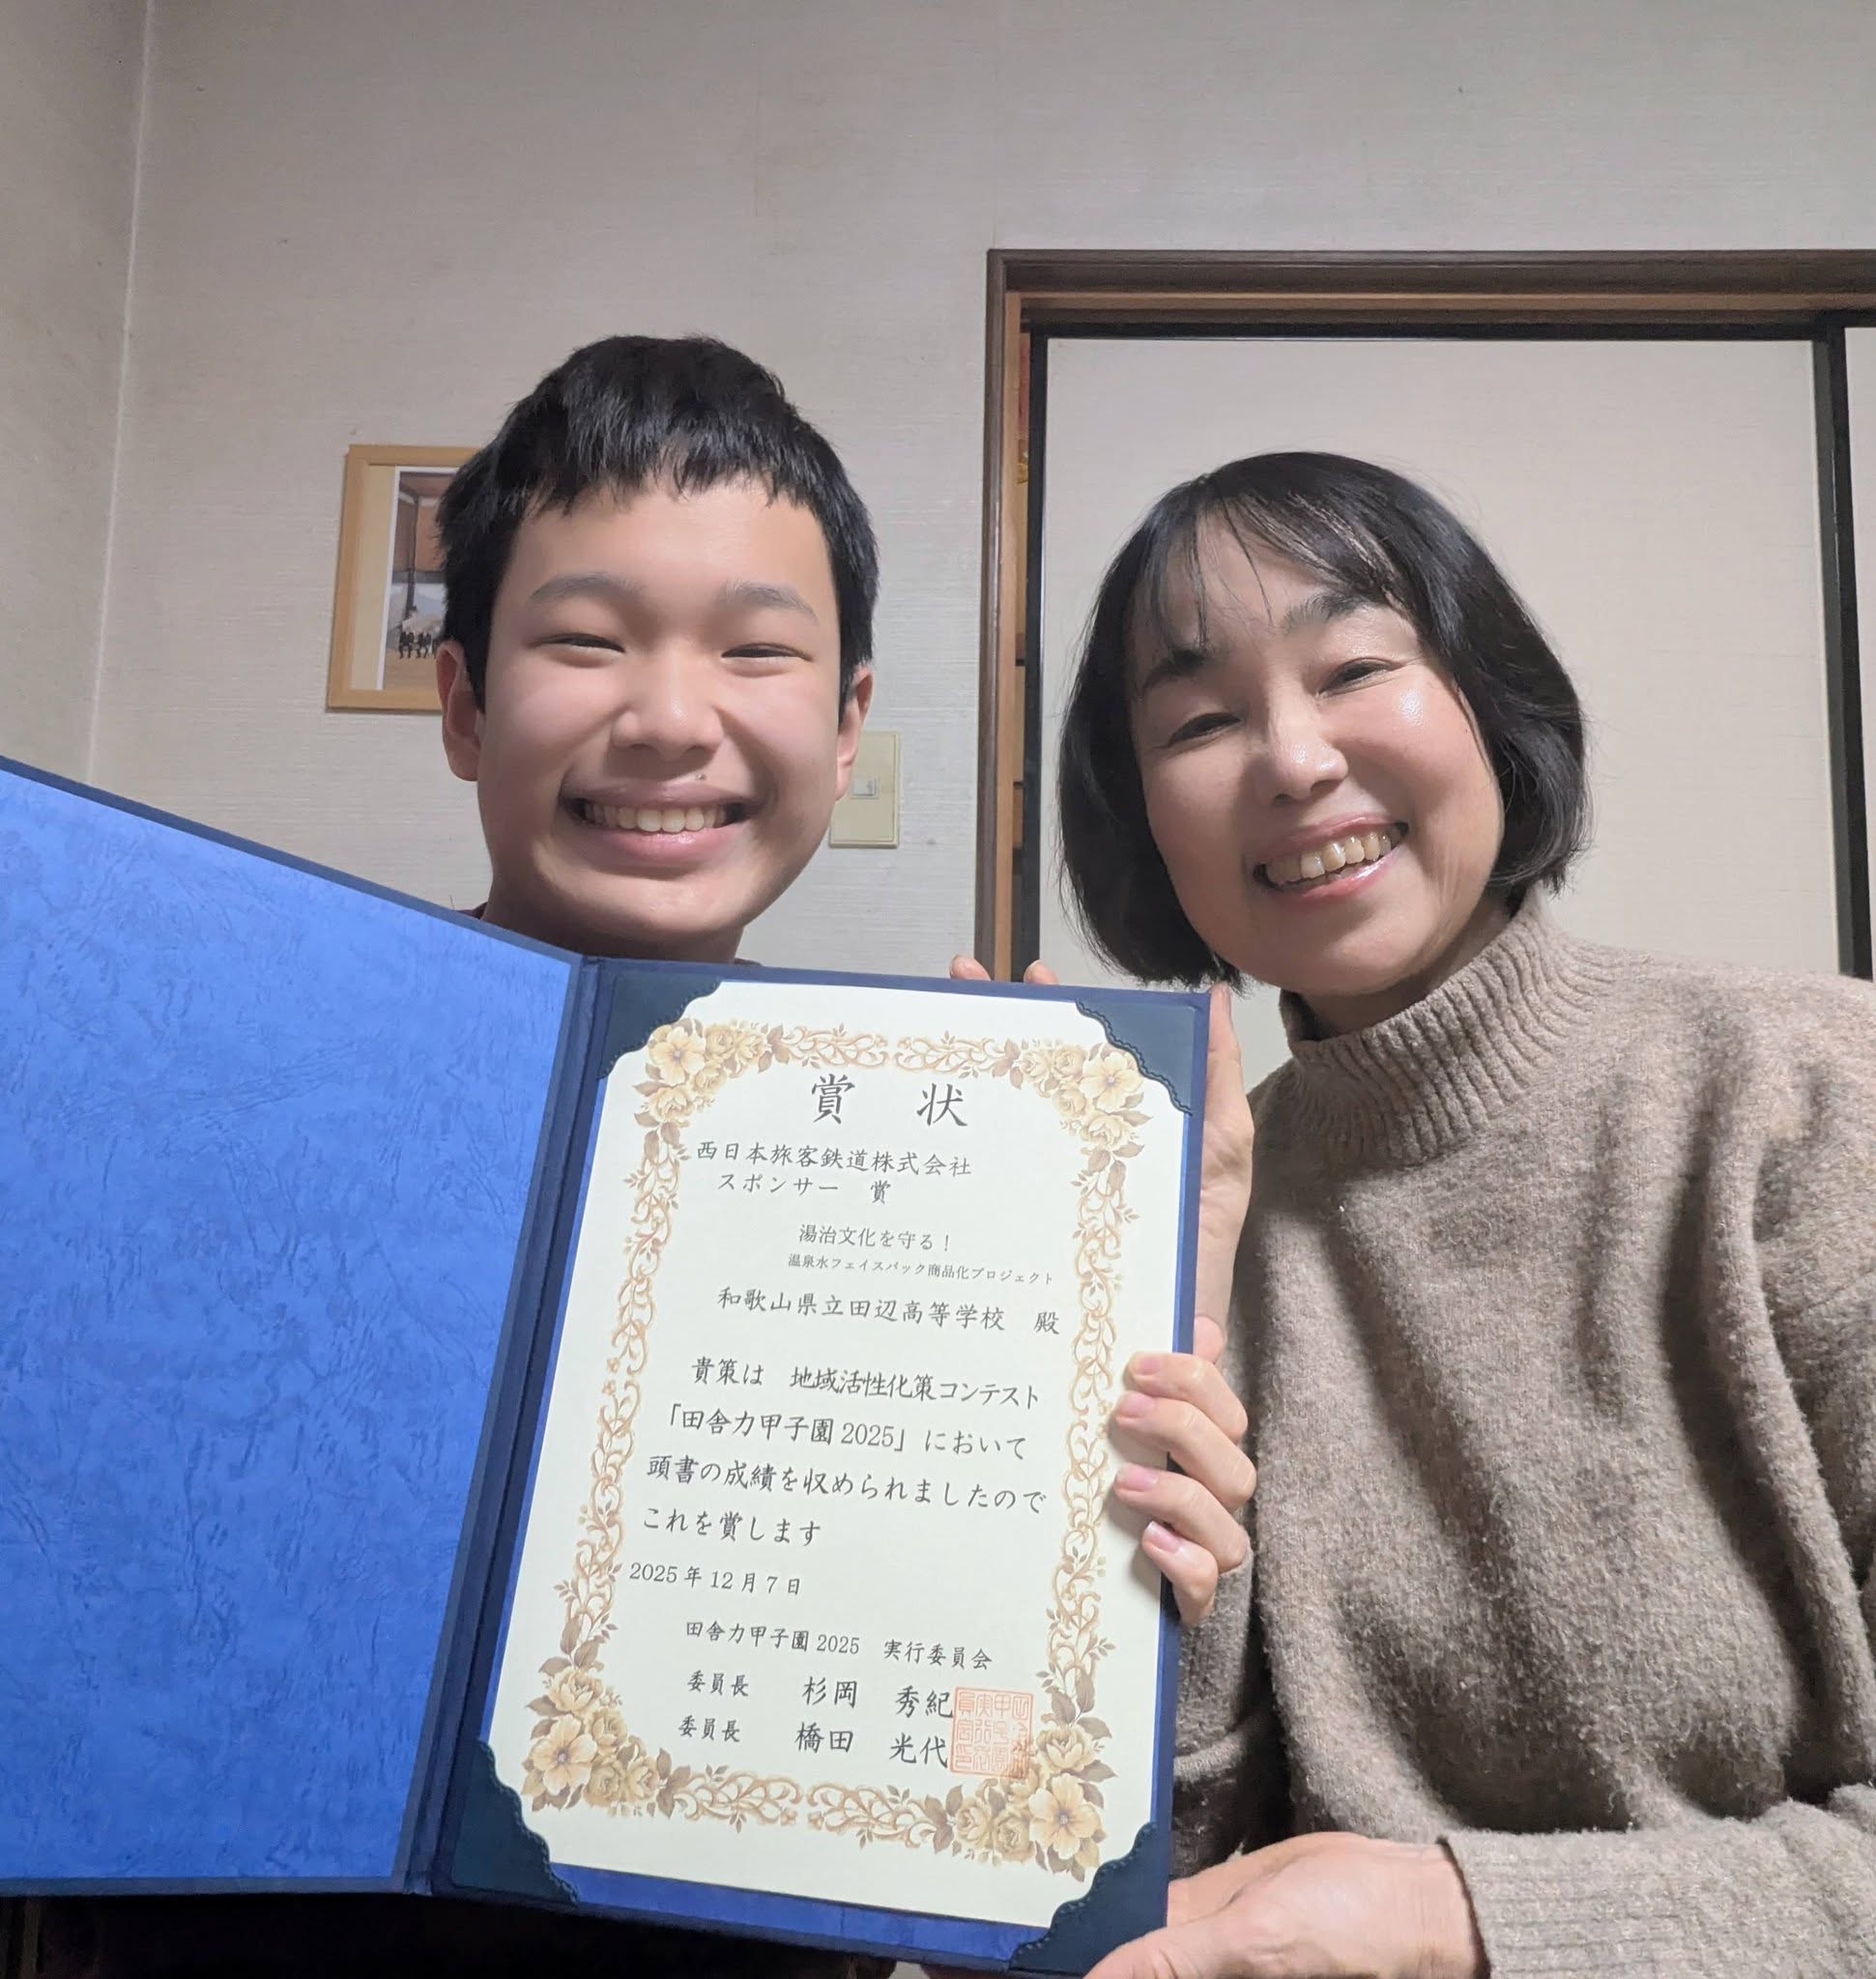 賞 状
西日本旅客鉄道株式会社
スポンサー 賞
湯治文化を守る!
温泉水フェイスパック商品化プロジェクト
和歌山県立田辺高等学校 殿
貴策は 地域活性化策コンテスト
「田舎力甲子園2025」において
頭書の成績を収められましたので
これを賞します
2025年12月7日
田舎力甲子園2025 実行委員会
委員長 杉岡 秀紀
委員長 橋田 光代